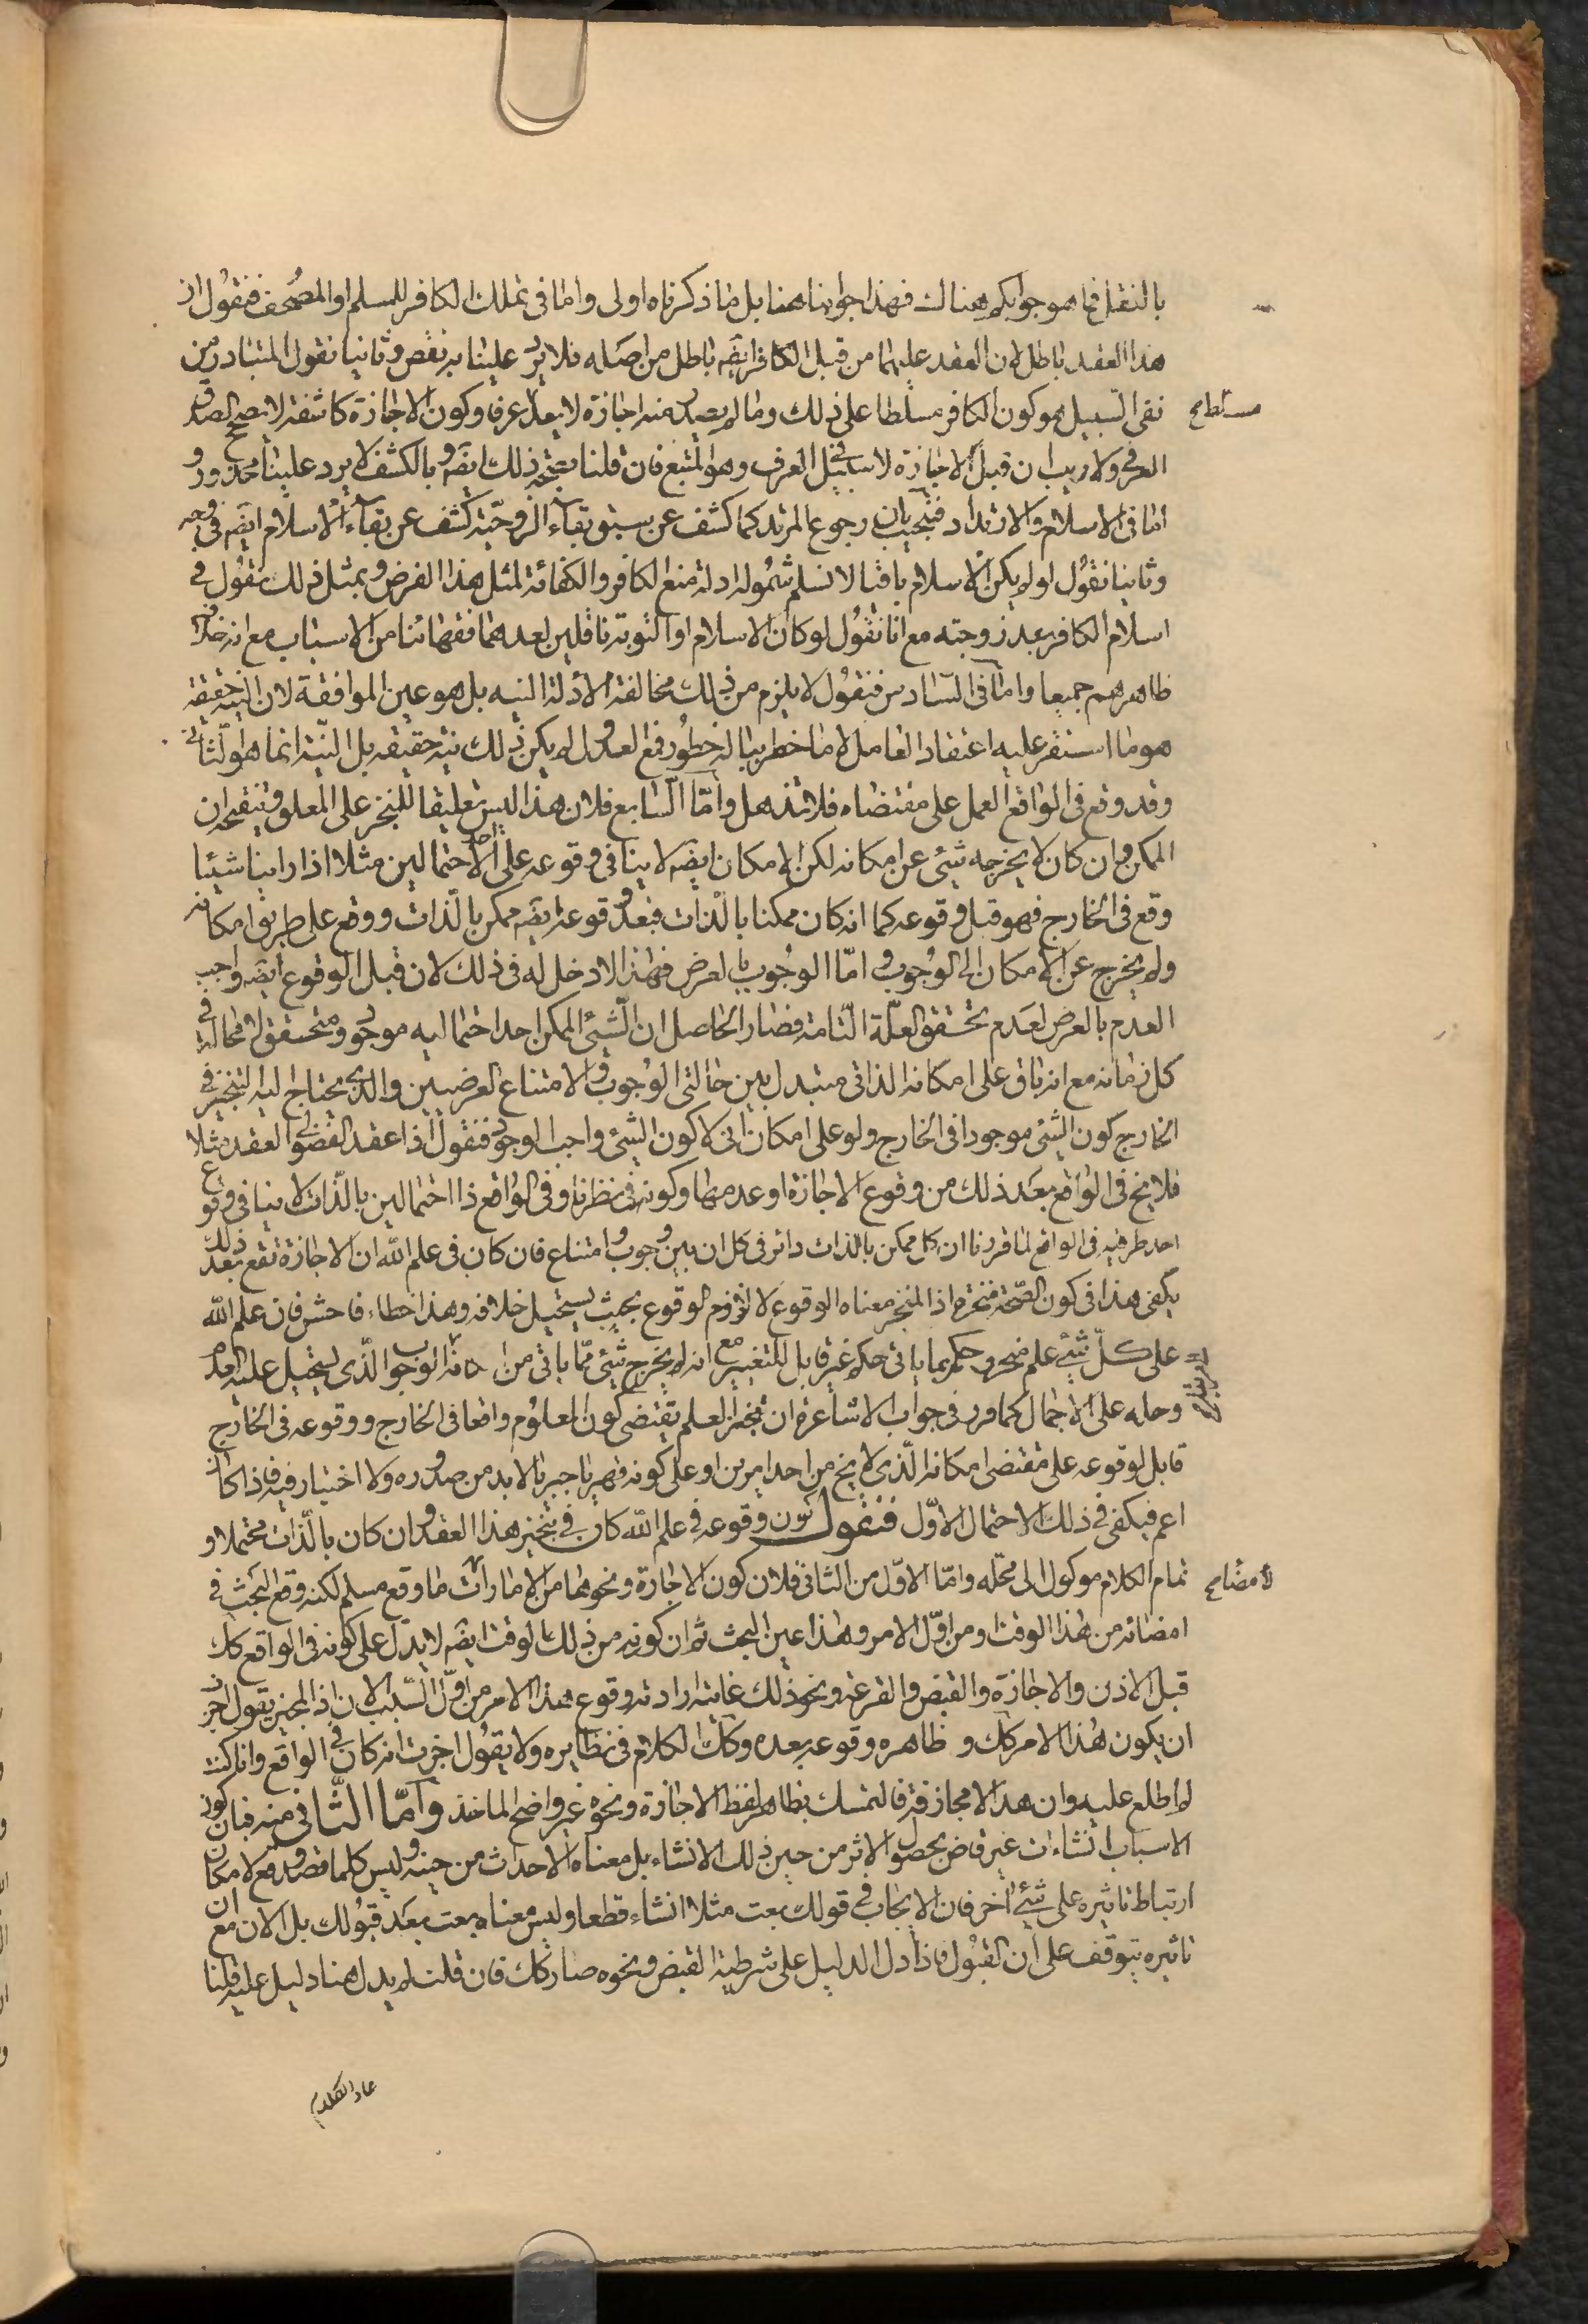 بالنقل فما هو جوابكم هناك فهذا جوابنا هنا بل ما ذكرناه اولى واما فى تملك الكافر للمسلم او المصحف فنقول ان
هذا العقد باطل لان العقد عليهما من قبل الكافر ايضه باطل من اصله فلا يرد علينا به نقض وثانيا نقول المتبادر من
نفى السبيل هو كون الكافر مسلطا على ذلك وما لم يصدر منه اجازة لا يعد عرفا وكون الاجازة كاشفة لا يصحح الصدق
العرفى ولا ريب ان قبل الاجازة لا سبيل فى العرف وهو المتبع فان قلنا بصحة ذلك ايضه وبالكشف لا يرد علينا محذور و
اما فى الاسلام والارتداد فنجيب بان رجوع المرتد كما كشف عن سبق بقاء الزوجية كشف عن بقاء الاسلام ايضه فى وجه
وثانيا نقول لو لم يكن الاسلام باقيا لا نسلم شموله ادلة منع الكافر والكفائة لمثل هذا الفرض وبمثل ذلك نقول فى
اسلام الكافر بعد زوجته مع انا نقول لو كان الاسلام او التوبة ناقلين لعدهما فقهائنا من الاسباب مع انه خلاف
ظاهرهم جميعا واما فى السادس فنقول لا يلزم من ذلك مخالفة الأدلة النية بل هو عين الموافقة لان النية حقيقة
هو ما استقر عليه اعتقاد العامل لا ما خطر بباله خطور فمع العدول لم يكن ذلك نية حقيقة بل النية انما هو الثانى
وقد وقع فى الواقع العمل على مقتضاه فلا تذهل وأمّا السّابع فلان هذا ليس تعليقا للمنجز على المعلق وتنقيحه ان
الممكن وان كان لا يخرجه شىء عن امكانه لكن الامكان ايضه لا ينافى وقوعه على احد الاحتمالين مثلا اذا راينا شيئا
وقع فى الخارج فهو قبل وقوعه كما انه كان ممكنا بالذات فبعد وقوعه ايضه ممكن بالذات ووقع على طريق امكانه
ولم يخرج عن الامكان الى الوجوب واما الوجوب بالعرض فهذا لا دخل له فى ذلك لان قبل الوقوع ايضه واجب
العدم بالعرض لعدم تحقق العلّة التّامة فصار الحاصل ان الشىء الممكن احد احتماليه موجود ومتحقق لا محالة فى
كل زمانه مع انه باق على امكانه الذاتى متبدل بين حالتى الوجوب والامتناع العرضيين والذى يحتاج اليه التنجيز فى
الخارج كون الشىء موجودا فى الخارج ولو على امكان ذاتى لا كون الشىء واجب الوجود فنقول اذا عقد الفضولى العقد مثلا
فلا يخ فى الواقع بعد ذلك من وقوع الاجازة او عدمها وكونه فى نظرنا وفى الواقع ذا احتمالين بالذات لا ينافى وقوع
احد طرفيه فى الواقع لما قررنا ان كل ممكن بالذات دائر فى كل ان بين وجوب وامتناع فان كان فى علم الله ان الاجازة تقع بعد ذلك
يكفى هذا فى كون الصحة منجزة اذ المنجز معناه الوقوع لا لزوم الوقوع بحيث يستحيل خلافه وهذا خطاء فاحش فان علم الله
على كلّ شىء علم منجز وحكم بما ياتى حكم غير قابل للتغيير مع انه لم يخرج شىء ممّا ياتى من الى الوجوب الذى يستحيل عليه العدم
وحله على الاجمال كما قرر فى جواب الاشاعرة ان تنجز العلم يقتضى كون المعلوم واقعا فى الخارج ووقوعه فى الخارج
قابل لوقوعه على مقتضى امكانه الذى لا يخ من احد امرين او على كونه قهريا جبريا لا بد من صدوره ولا اختيار فيه فاذا كان
اعم فيكفى فى ذلك الاحتمال الاوّل فنقول كون وقوعه فى علم الله كاف فى تنجيز هذا العقد وان كان بالذات محتملا و
تمام الكلام موكول الى محله وامّا الاوّل من الثانى فلان كون الاجازة ونحوها من الامارات ما وقع مسلم لكنه وقع البحث فى
امضائه من هذا الوقت او من اوّل الامر وهذا عين البحث ثم ان كونه من ذلك الوقت ايضه لا يدل على كونه فى الواقع كك
قبل الاذن والاجازة والقبض والقرعة ونحو ذلك غايته ارادته وقوع هذا الامر من اوّل السّبب الان اذ المجيز يقول اجزت
ان يكون هذا الامر كك وظاهره وقوعه بعده وكك الكلام فى نظايره ولا يقول اخبرت انه كان فى الواقع وانا كنت
لم اطلع عليه وان هذا الا مجازفة فالتمسك بظاهر لفظ الاجازة ونحوه غير واضح الماخذ وأمّا الثّانى منه فبان كون
الاسباب انشاءات غير قاض بحصول الاثر من حين ذلك الانشاء بل معناه الاحداث من حينه وليس كلما قصد وقع لامكان
ارتباط تاثيره على شىء اخر فان الايجاب فى قولك بعت مثلا انشاء قطعا وليس معناه بعت بعد قبولك بل الان مع ان
تاثيره يتوقف على ان القبول فاذا دل الدليل على شرطية القبض ونحوه صار كك فان قلت لم يدل هنا دليل عليه قلنا